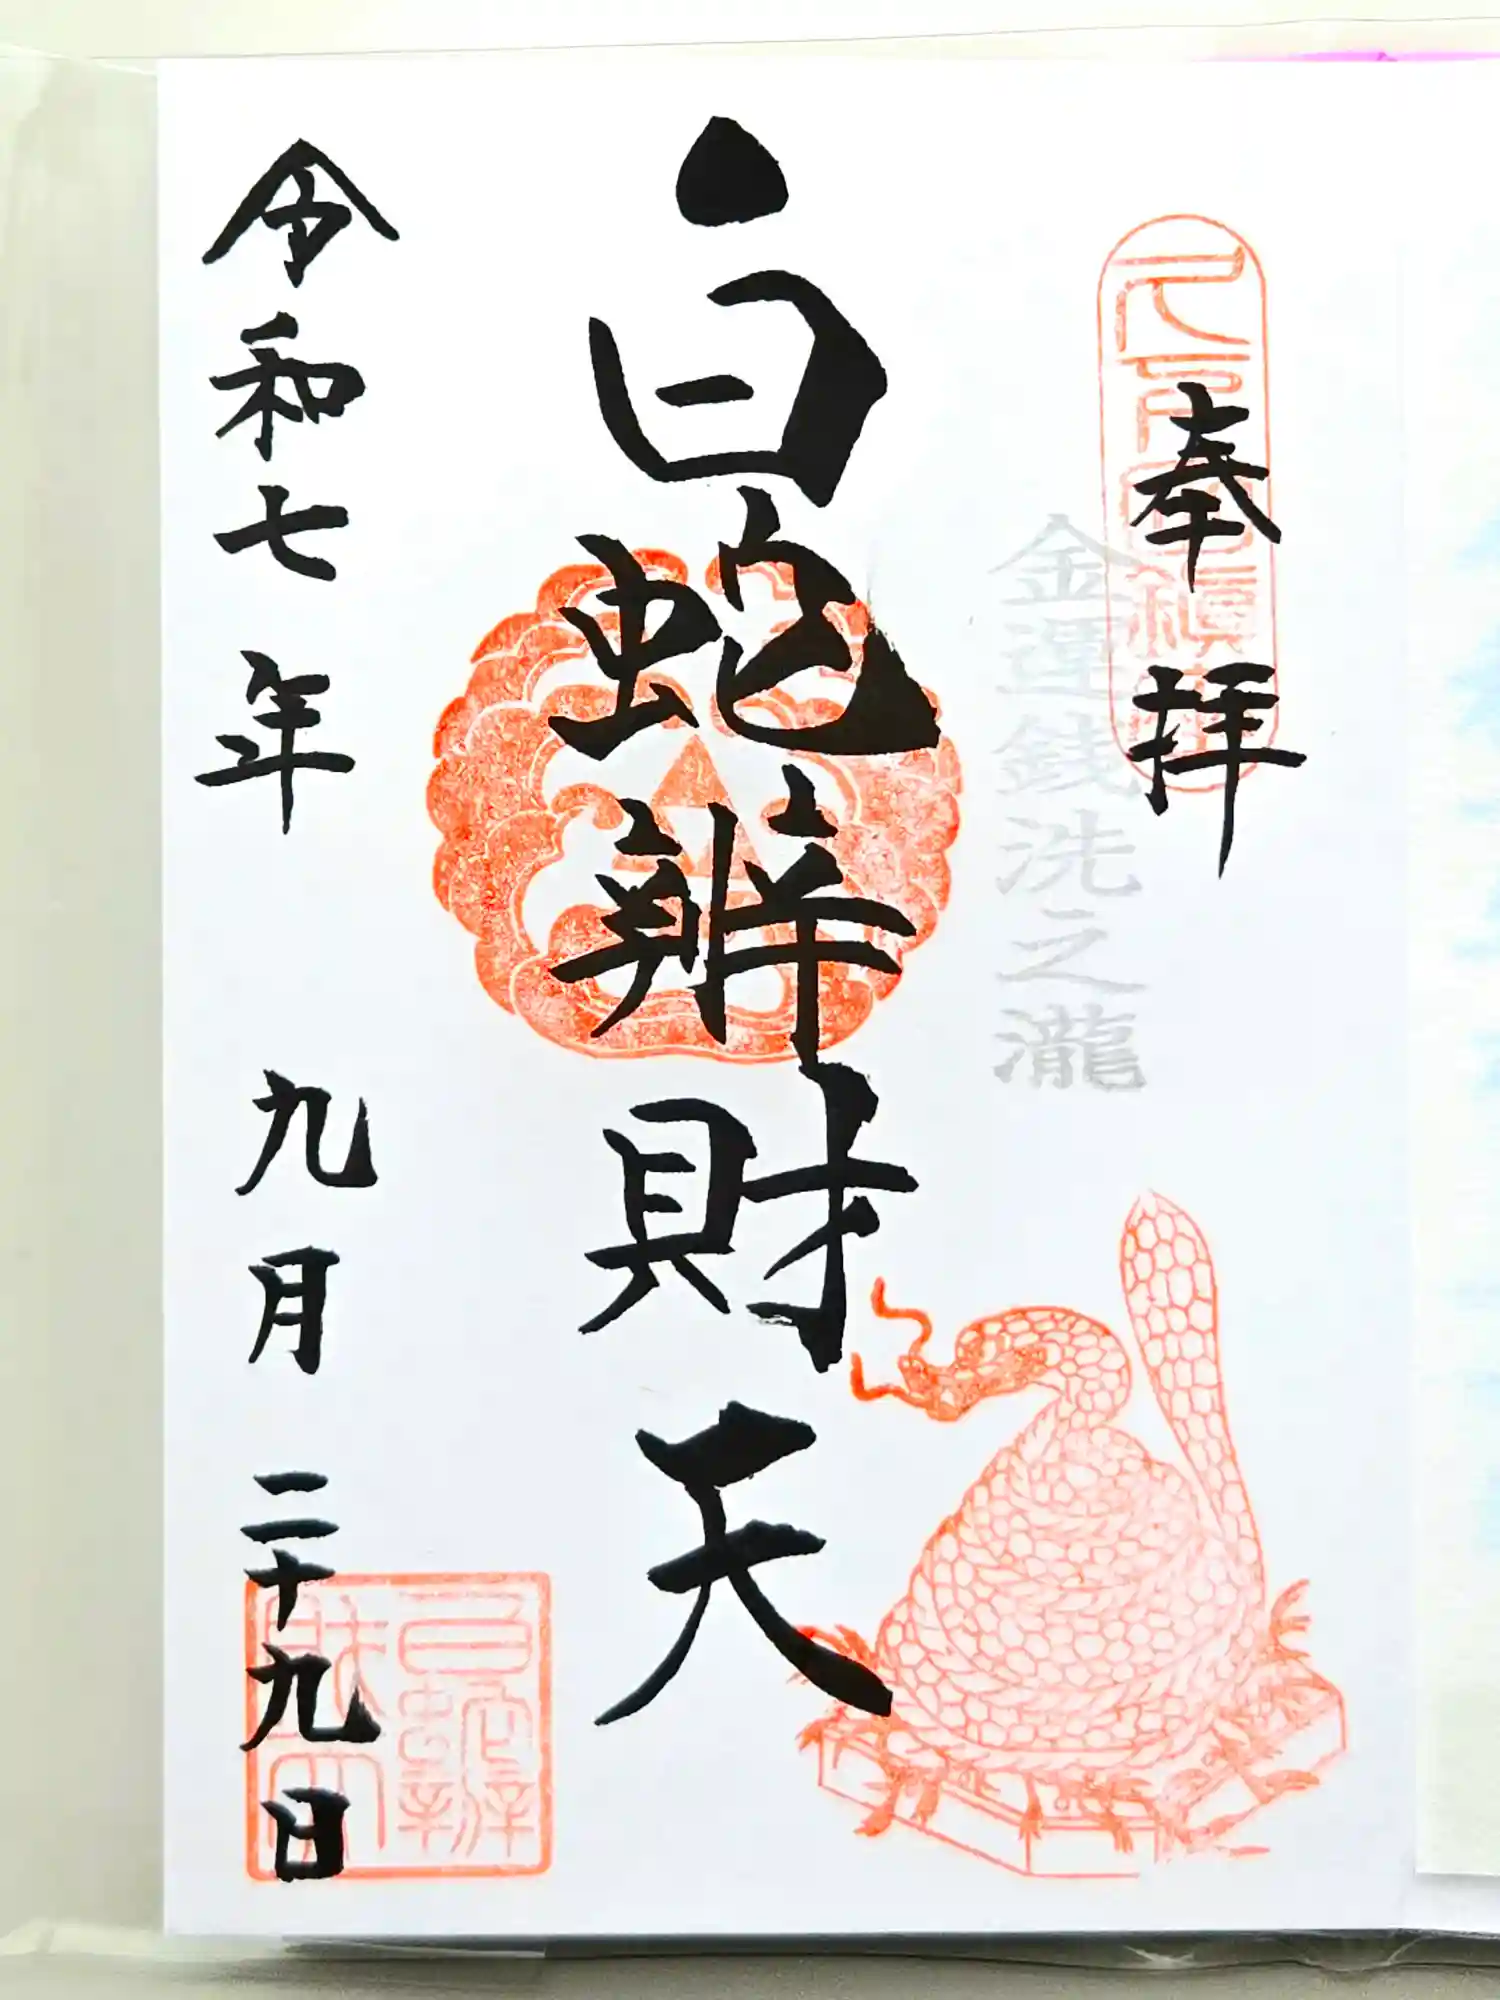 奉拝
金運銭洗之瀧
白蛇辨財天
白蛇辨財天
令和七年 九月 二十九日